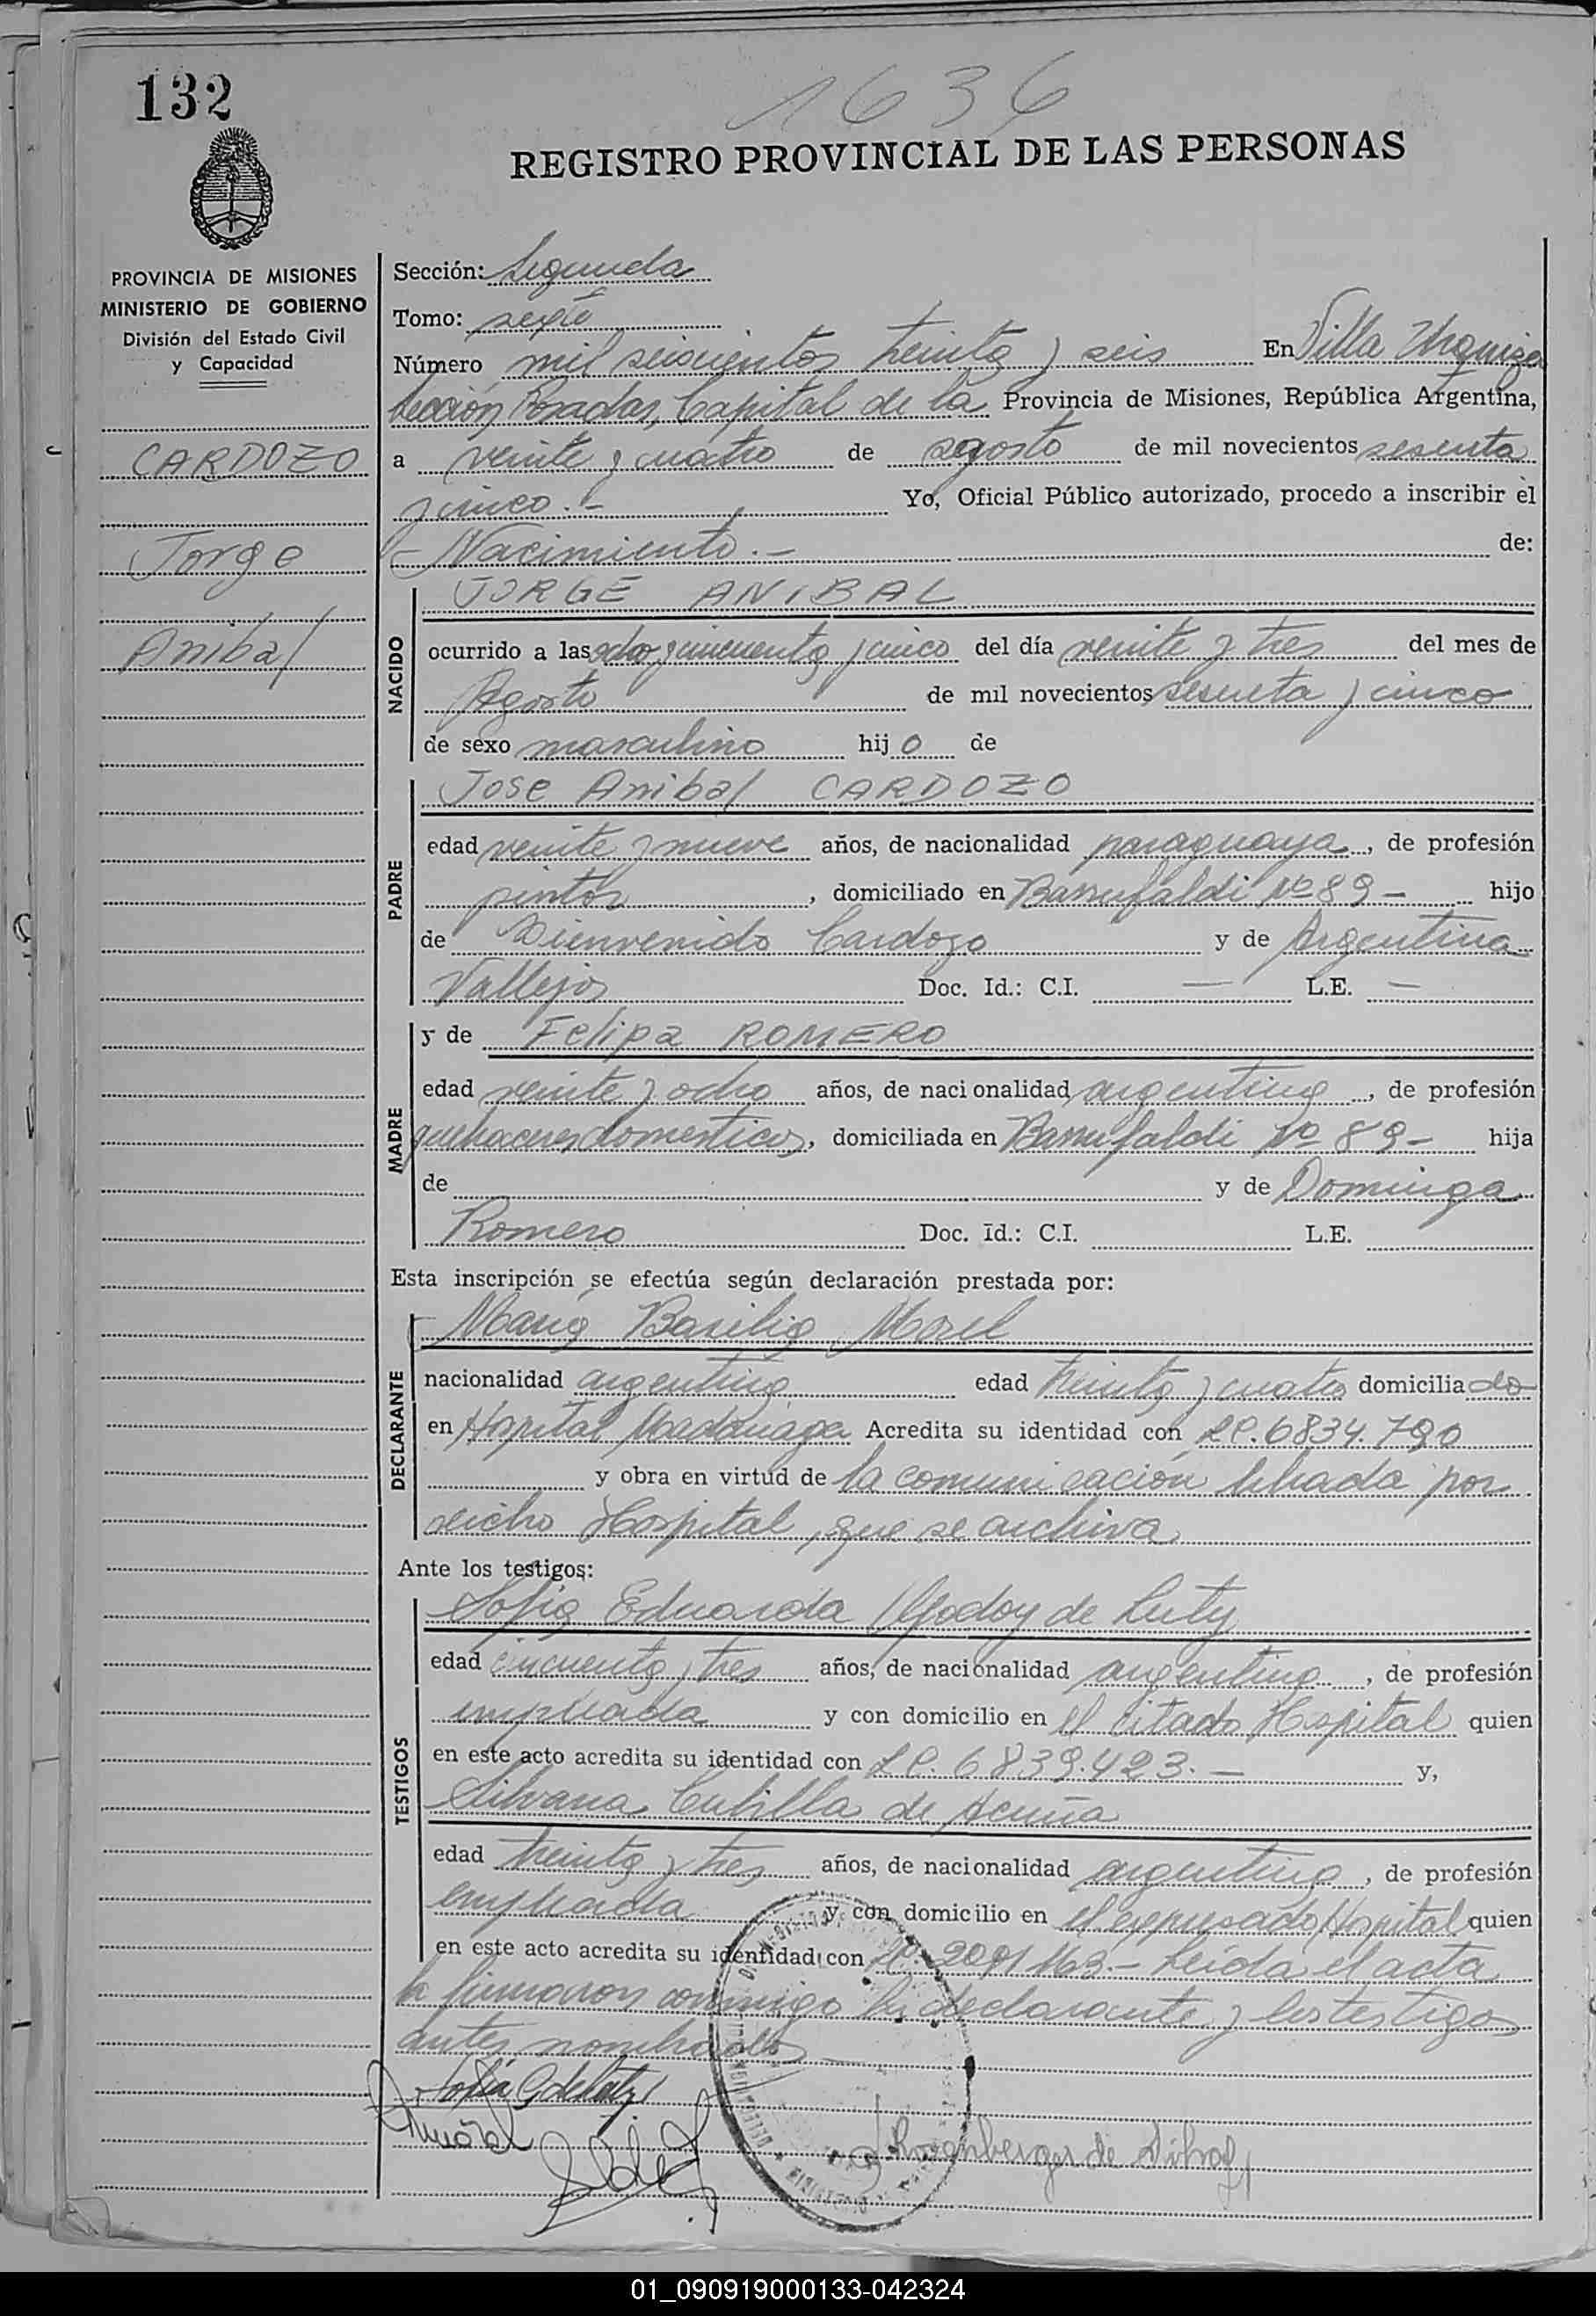 132
1636
REGISTRO PROVINCIAL DE LAS PERSONAS
PROVINCIA DE MISIONES
MINISTERIO DE GOBIERNO
División del Estado Civil
y Capacidad
CARDOZO
Jorge
Anibal
Sección: Segunda
Tomo: sexto
Número mil seiscientos treinta y seis En Villa Urquiza
Sección Posadas, Capital de la Provincia de Misiones, República Argentina,
a veinte y cuatro de agosto de mil novecientos sesenta
y cinco.- Yo, Oficial Público autorizado, procedo a inscribir el
- Nacimiento.- de:
NACIDO
JORGE ANIBAL
ocurrido a las ocho y cincuenta y cinco del día veinte y tres del mes de
Agosto de mil novecientos sesenta y cinco
de sexo masculino hijo de
PADRE
Jose Anibal CARDOZO
edad veinte y nueve años, de nacionalidad paraguaya, de profesión
pintor, domiciliado en Barrufaldi Nº 89 - hijo
de Bienvenido Cardozo y de Argentina
Vallejos Doc. Id.: C.I. — L.E. —
MADRE
y de Felipa ROMERO
edad veinte y ocho años, de nacionalidad argentina, de profesión
quehaceres domesticos, domiciliada en Barrufaldi Nº 89 - hija
de y de Dominga
Romero Doc. Id.: C.I. L.E.
Esta inscripción se efectúa según declaración prestada por:
DECLARANTE
María Basilia Morel
nacionalidad argentina edad treinta y cuatro domiciliado
en Hospital Madariaga Acredita su identidad con LC. 6834.790
y obra en virtud de la comunicación librada por
dicho Hospital, que se archiva
Ante los testigos:
TESTIGOS
Sofia Eduarda Godoy de Luty
edad cincuenta y tres años, de nacionalidad argentina, de profesión
empleada y con domicilio en el citado Hospital quien
en este acto acredita su identidad con LC. 6839.423. - y,
Silvana Cubilla de Acuña
edad treinta y tres años, de nacionalidad argentina, de profesión
empleada y con domicilio en el expresado Hospital quien
en este acto acredita su identidad con LC. 163.- Leída el acta
la firmaron conmigo la declarante y los testigos
antes nombrados
Rosenberger de
01_090919000133-042324